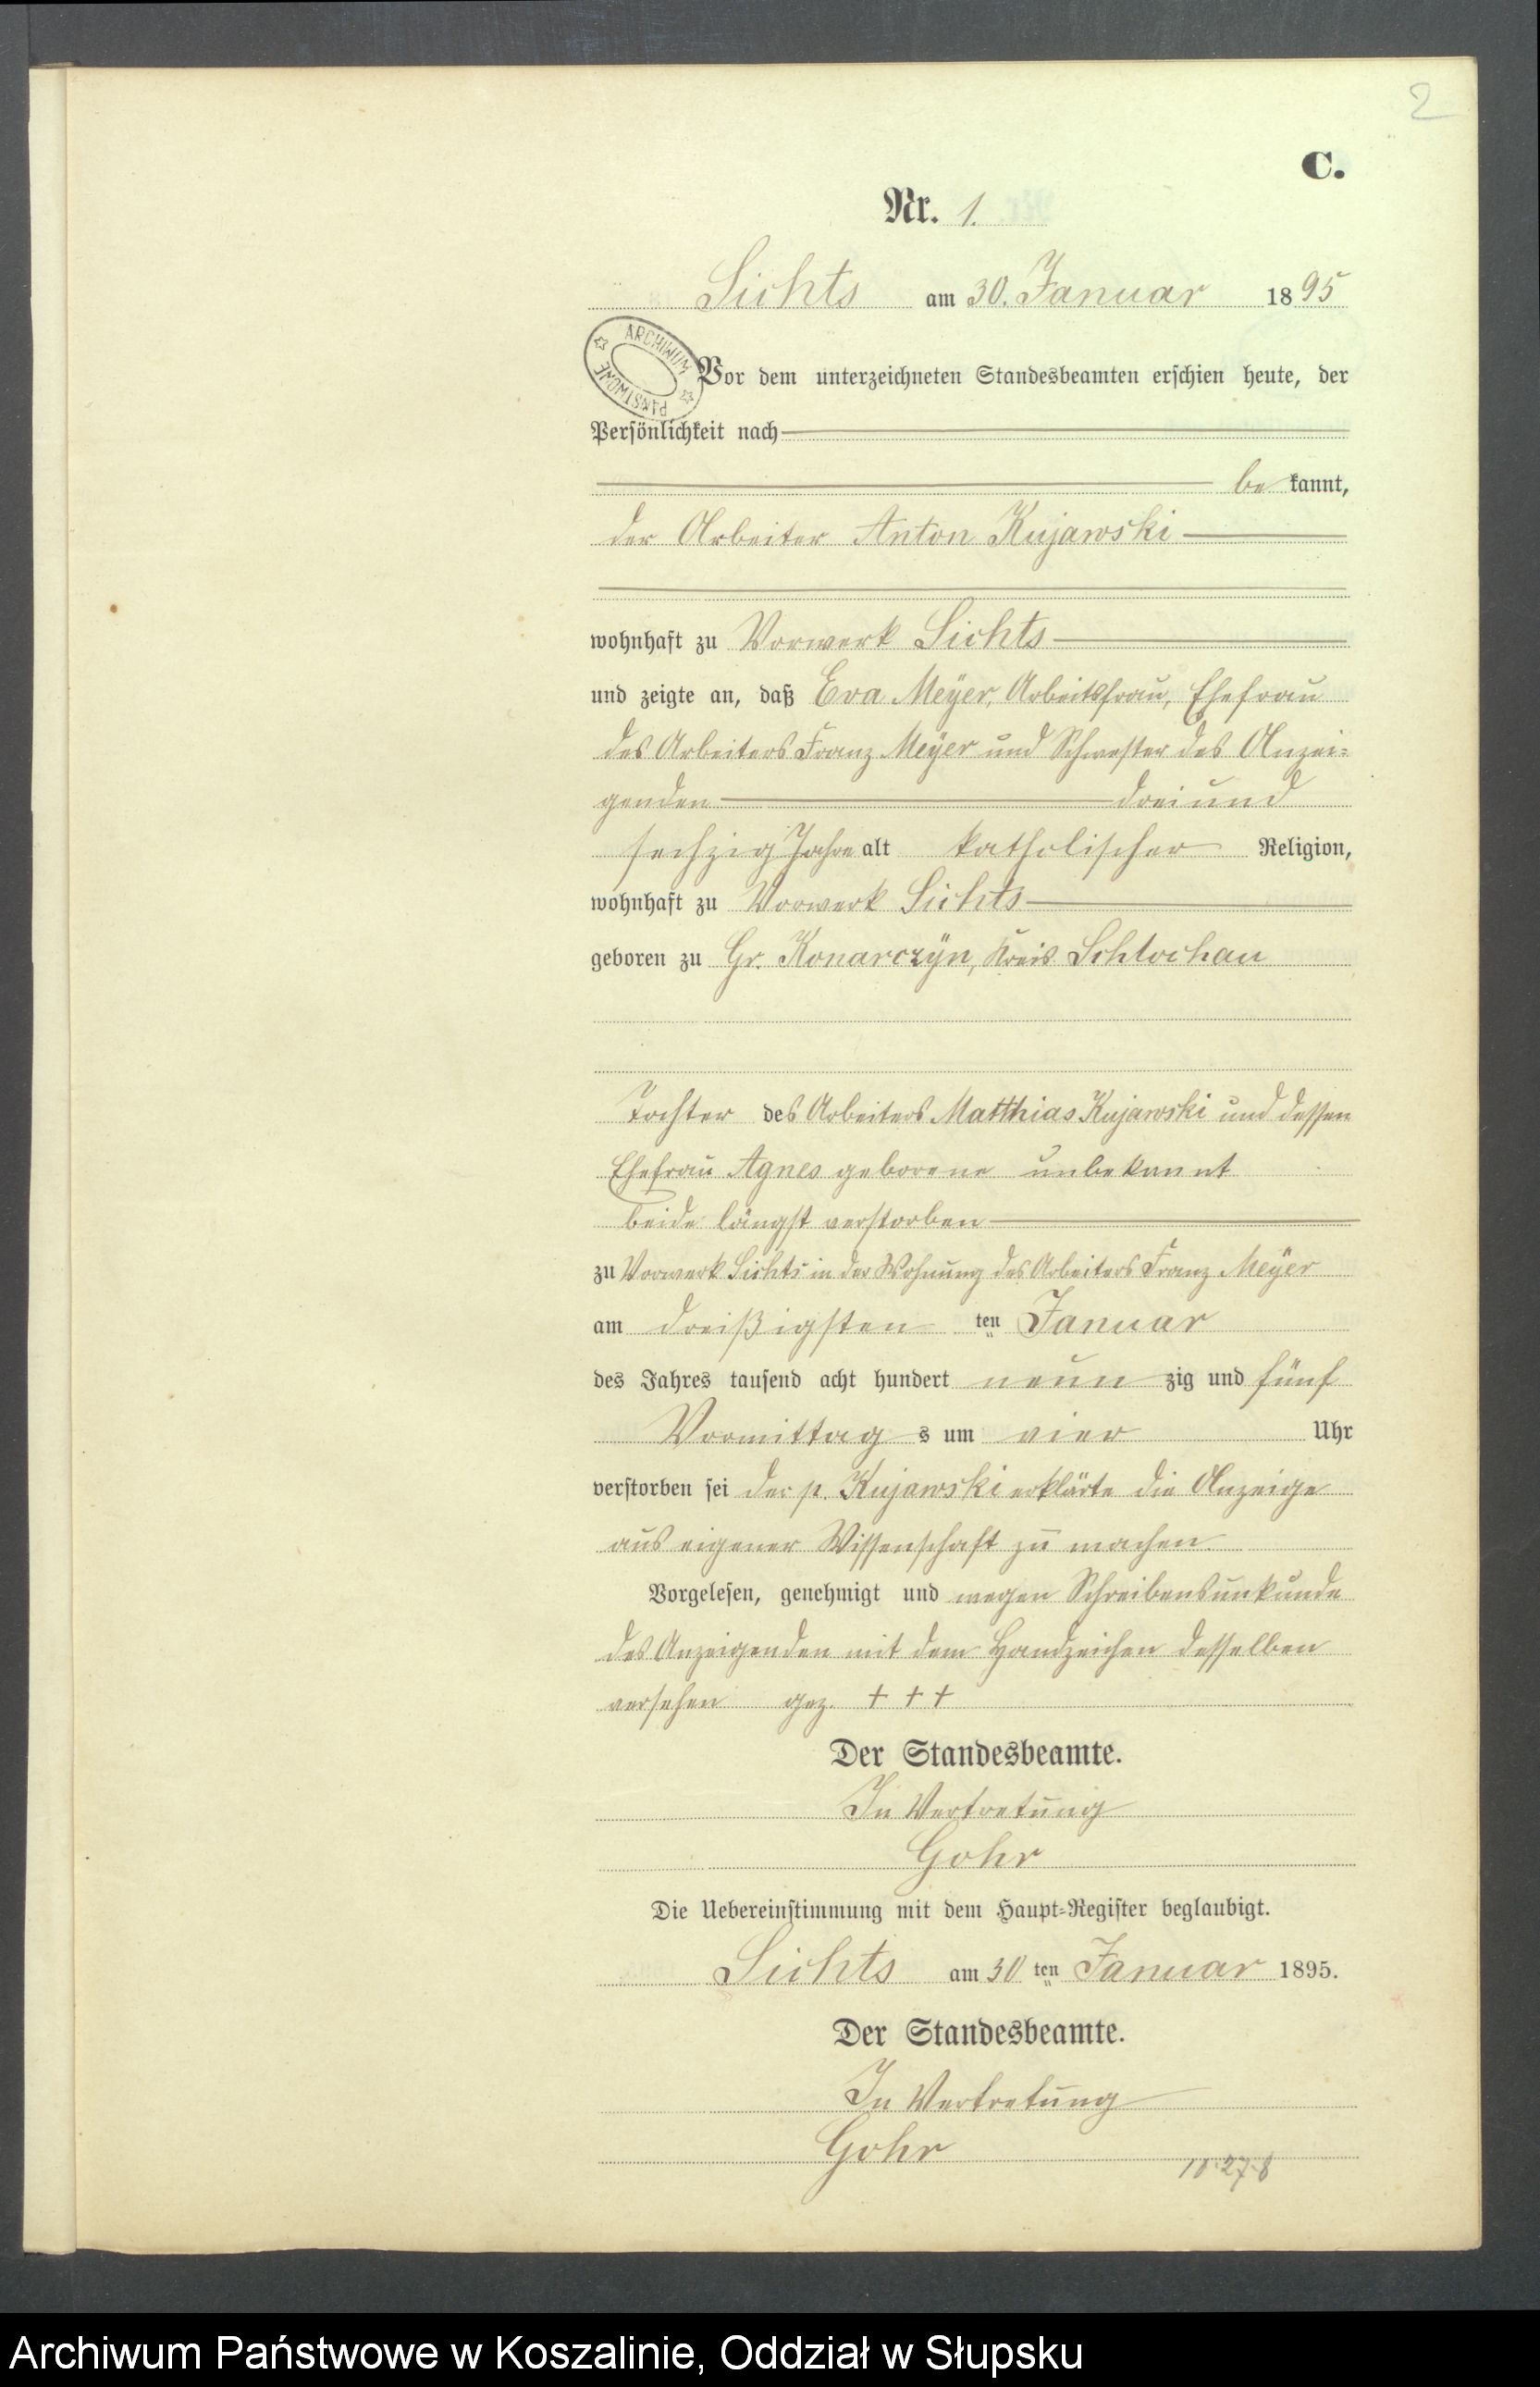 2
C.
Nr. 1.
Sichts am 30. Januar 1895
ARCHIWUM PAŃSTWOWE
Vor dem unterzeichneten Standesbeamten erschien heute, der
Persönlichkeit nach
be kannt,
der Arbeiter Anton Kujawski
wohnhaft zu Vorwerk Sichts
und zeigte an, daß Eva Meÿer, Arbeitsfrau, Ehefrau
des Arbeiters Franz Meÿer und Schwester des Anzei-
genden dreiund
sechzig Jahre alt katholischer Religion,
wohnhaft zu Vorwerk Sichts
geboren zu Gr. Konarczÿn, Kreis Schlochau
Tochter des Arbeiters Matthias Kujawski und dessen
Ehefrau Agnes geborene unbekannt
beide längst verstorben
zu Vorwerk Sichts in der Wohnung des Arbeiters Franz Meÿer
am dreißigsten ten Januar
des Jahres tausend acht hundert neun zig und fünf
Vormittag s um vier Uhr
verstorben sei der p. Kujawski erklärte die Anzeige
aus eigener Wissenschaft zu machen.
Vorgelesen, genehmigt und wegen Schreibensunkunde
des Anzeigenden mit dem Handzeichen desselben
versehen gez. + + +
Der Standesbeamte.
In Vertretung
Gohr
Die Uebereinstimmung mit dem Haupt-Register beglaubigt.
Sichts am 30 ten Januar 1895.
Der Standesbeamte.
In Vertretung
Gohr
Archiwum Państwowe w Koszalinie, Oddział w Słupsku